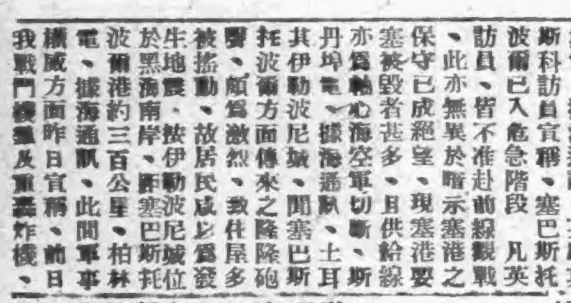 斯科訪員宣稱、塞巴斯托
波爾已入危急階段　凡英
訪員、皆不准赴前線觀戰
、此亦無異於暗示塞港之
保守已成絕望、現塞港要
塞被毀者甚多、且供給線
亦爲軸心海空軍切斷、斯
丹埠電、據海通訊、土耳
其伊勒波尼城、聞塞巴斯
托波爾方面傳來之隆隆砲
聲、頗爲激烈、致住屋多
被搖動、故居民咸以爲發
生地震、按伊勒波尼城位
於黑海南岸、距塞巴斯托
波爾港約三百公里、柏林
電、據海通訊、此間軍事
權威方面昨日宣稱、前日
我戰鬥機羣及重轟炸機、